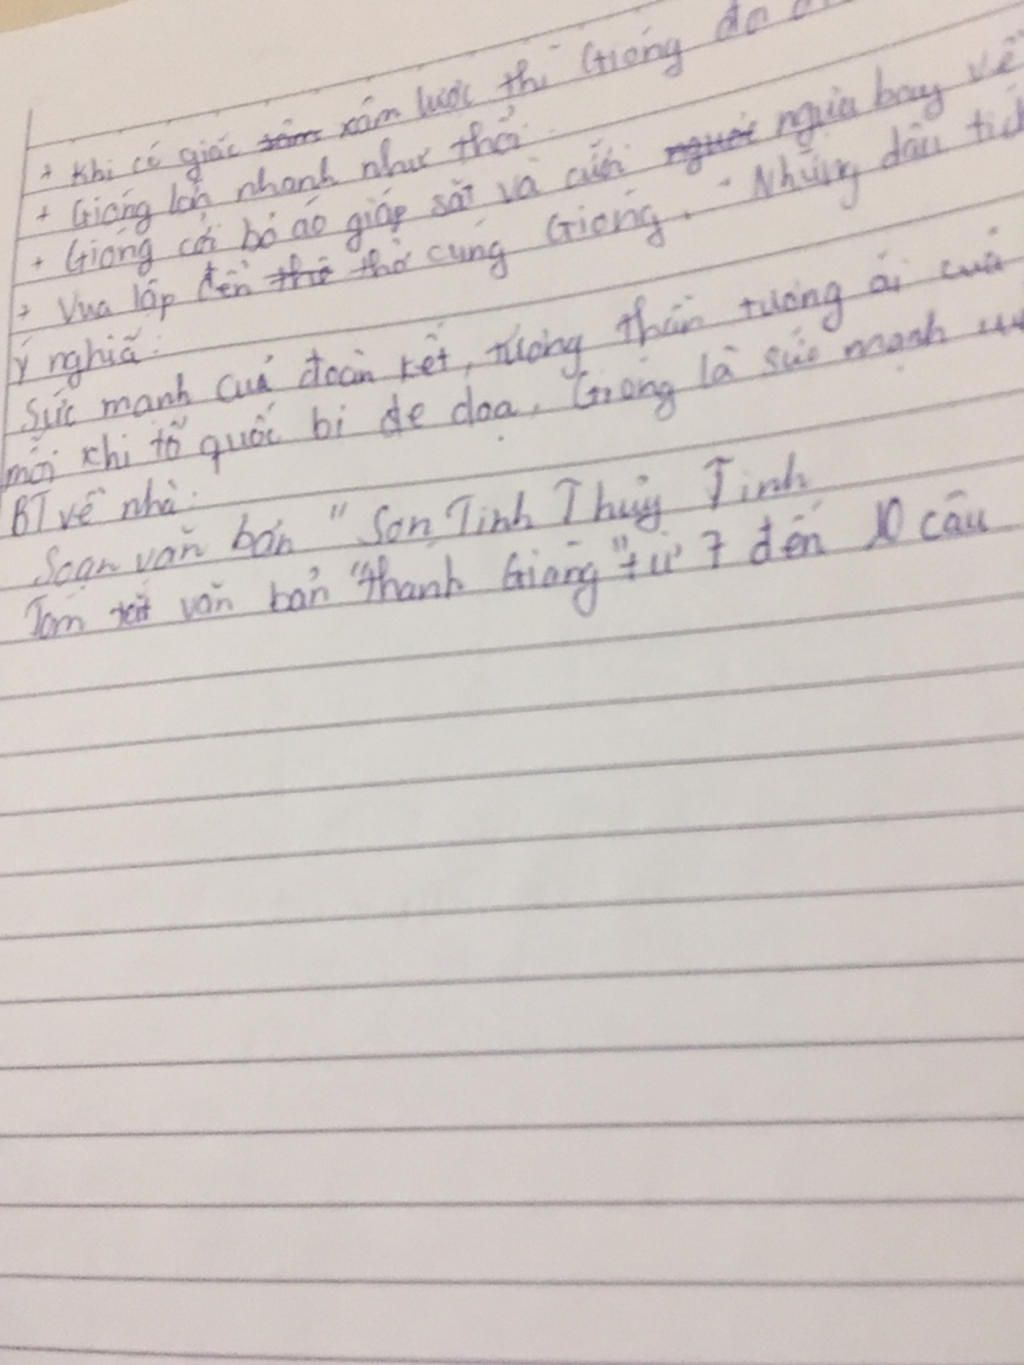 + Khi có giặc xâm lược thì Gióng đã
+ Gióng lớn nhanh như thổi.
+ Gióng cởi bỏ áo giáp sắt và cưỡi ngựa bay về
+ Vua lập đền thờ cúng Gióng. - Những dấu tích
Ý nghĩa:
Sức mạnh của đoàn kết, tương thân tương ái của
mỗi khi tổ quốc bị đe dọa, Gióng là sức mạnh
BT về nhà:
Soạn văn bản "Sơn Tinh Thủy Tinh
Tóm tắt văn bản "Thánh Gióng" từ 7 đến 10 câu